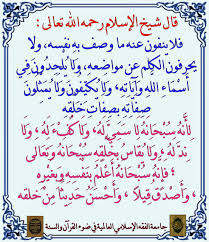 قال شيخ الإسلام رحمه الله تعالى :
فلا ينفون عنه ما وصف به نفسه، ولا
يحرفون الكلم عن مواضعه، ولا يلحدون في
أسماء الله وآياته، ولا يكيفون ولا يمثلون
صفاته بصفات خلقه
لأنه سبحانه لا سمي له، ولا كفء له، ولا
ند له، ولا يقاس بخلقه سبحانه وتعالى
، فإنه سبحانه أعلم بنفسه وبغيره
، وأصدق قيلا ، وأحسن حديثا من خلقه
جامعة الفقه الإسلامي العالمية في ضوء القرآن والسنة